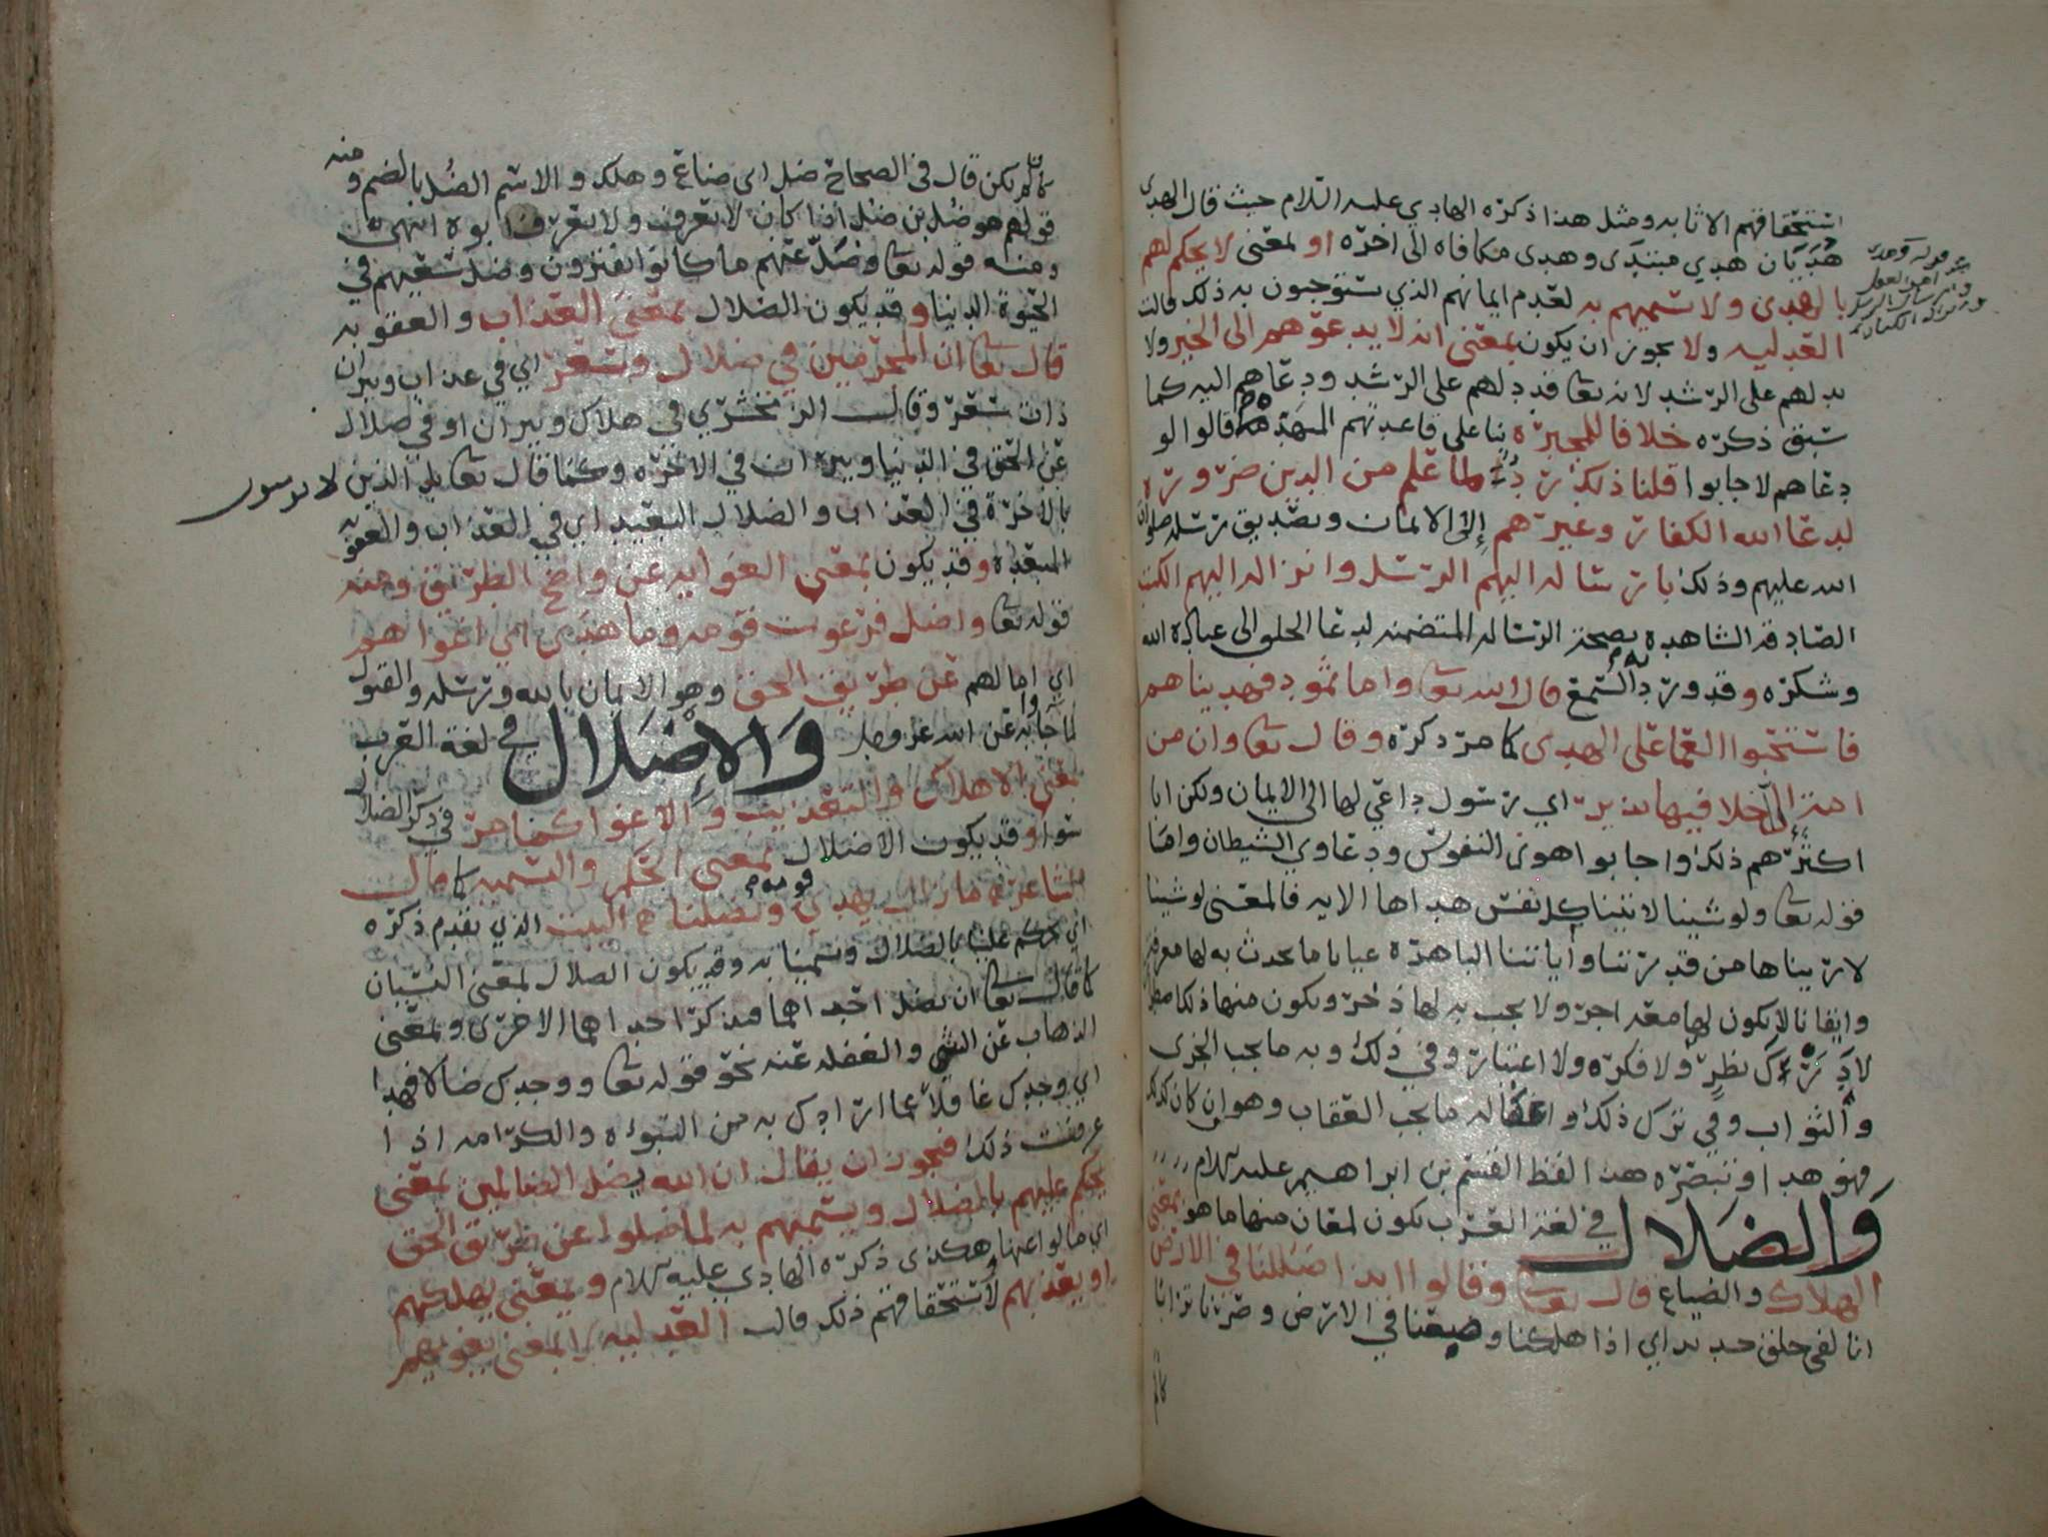 استحقاقهم الاثابه ومثل هذا ذكره الهادي عليه السلام حيث قال الهدى
هُدَيَان هدي مبتدى وهدى مكافاه الى اخره او بمعنى لا يحكم لهم
بالهدى ولا يسميهم به لعدم ايمانهم الذي يستوجبون به ذلك قالت
العدليه ولا يجوز ان يكون بمعنى انه لا يدعوهم الى الخير ولا
يدلهم على الرشد لانه تعا قد دلهم على الرشد ودعاهم اليه كما
سبق ذكره خلافا للمجبره بنا على قاعدتهم المنهده قالوا لو
دعاهم لاجابوا قلنا ذلك رد لما علم من الدين ضروره
لدعا الله الكفار وغيرهم إلى الايمان وتصديق رسله صلوات
الله عليهم وذلك بارساله اليهم الرسل وانزاله اليهم الكتب
الصادقه الشاهده بصحة الرساله المتضمنه لدعا الخلق الى عبادة الله
وشكره وقد ورد به السمع قال الله تعا واما ثمود فهديناهم
فاستحبوا العما على الهدى كما مر ذكره وقال تعا وان من
امة إلا خلا فيها نذير اي رسول داعي لها الى الايمان ولكن ابا
اكثرهم ذلك واجابوا هوى النفوس ودعاوي الشيطان واما
قوله تعا ولو شينا لاتينا كل نفس هداها الايه فالمعنى لو شينا
لارينا ها من قدرتنا وأياتنا الباهره عيانا ما يحدث به لها معرفة
وايقانا لا يكون لها معه اجر ولا يجب به لها ذخر ويكون منها ذلك
لا نظر ولا فكره ولا اعتبار وفي ذلك وبه ما يجب الجزى
والثواب وفي ترك ذلك و له ما يجب العقاب وهو ان كان كذلك
فهو هدا وتبصره هذا لفظ القسم بن ابراهيم عليه السلام
وَالضَلال في لغة العرب يكون لمعان منها ما هو بمعنى
الهلاك والضياع قال تعا وقالوا ايذا ضللنا في الارض
انا لفي خلق جديد اي اذا هلكنا وضيعنا في الارض وصرنا ترابا
كان لم
كان لم يكن قال في الصحاح ضل اي ضاع وهلك والاسم الضُل بالضم ومنه
قولهم هو ضل بن ضل اذا كان لا يعرف ولا يعرف ابوه انتهى
ومنه قوله تعا وضل عنهم ما كانوا يفترون وضل سعيهم في
الحيوة الدينا وقد يكون الضلال بمعنى العذاب والعقوبه
قال تعا ان المجرمين في ضلال وسعر اي في عذاب ونيران
ذات سعر وقال الزمخشري في هلاك ونيران او في ضلال
عن الحق في الدنيا ونيران في الاخره وكما قال تعا بل الذين لا يومنون
بالاخرة في العذاب والضلال البعيد اي في العذاب والعقوبه
المبعده وقد يكون بمعنى الغوايه عن واضح الطريق ومنه
قوله تعا واضل فرعون قومه وما هدى اي اغواهم
اي امالهم عن طريق الحق وهو الايمان بالله ورسله والقبول
لما جاوا به عن الله عز وجل وَالإِضلال في لغة العرب
بمعنى الاهلاك والتعذيب والاغوا كما مر في ذكر الضلال
سوا وقد يكون الاضلال بمعنى الحكم والتسميه كما قال
الشاعر ما زال يهدي قومه ويضلنا البيت الذي تقدم ذكره
اي يحكم علينا بالضلال ويسمينا به وقد يكون الضلال بمعنى النسيان
كما قال تعا ان تضل احداهما فتذكر احداهما الاخرى وبمعنى
الذهاب عن الشي والغفله عنه نحو قوله تعا ووجدك ضالا فهدا
اي وجدك غافلا عما ارادك به من النبوه والكرامه اذا
عرفت ذلك فيجوز ان يقال ان الله يضل الظالمين بمعنى
يحكم عليهم بالضلال ويسميهم به لما ضلوا عن طريق الحق
اي مالوا عنها وهكذى ذكره الهادي عليه السلام وبمعنى يهلكهم
او يعذبهم لاستحقاقهم ذلك قالت العدليه لا بمعنى يغويهم